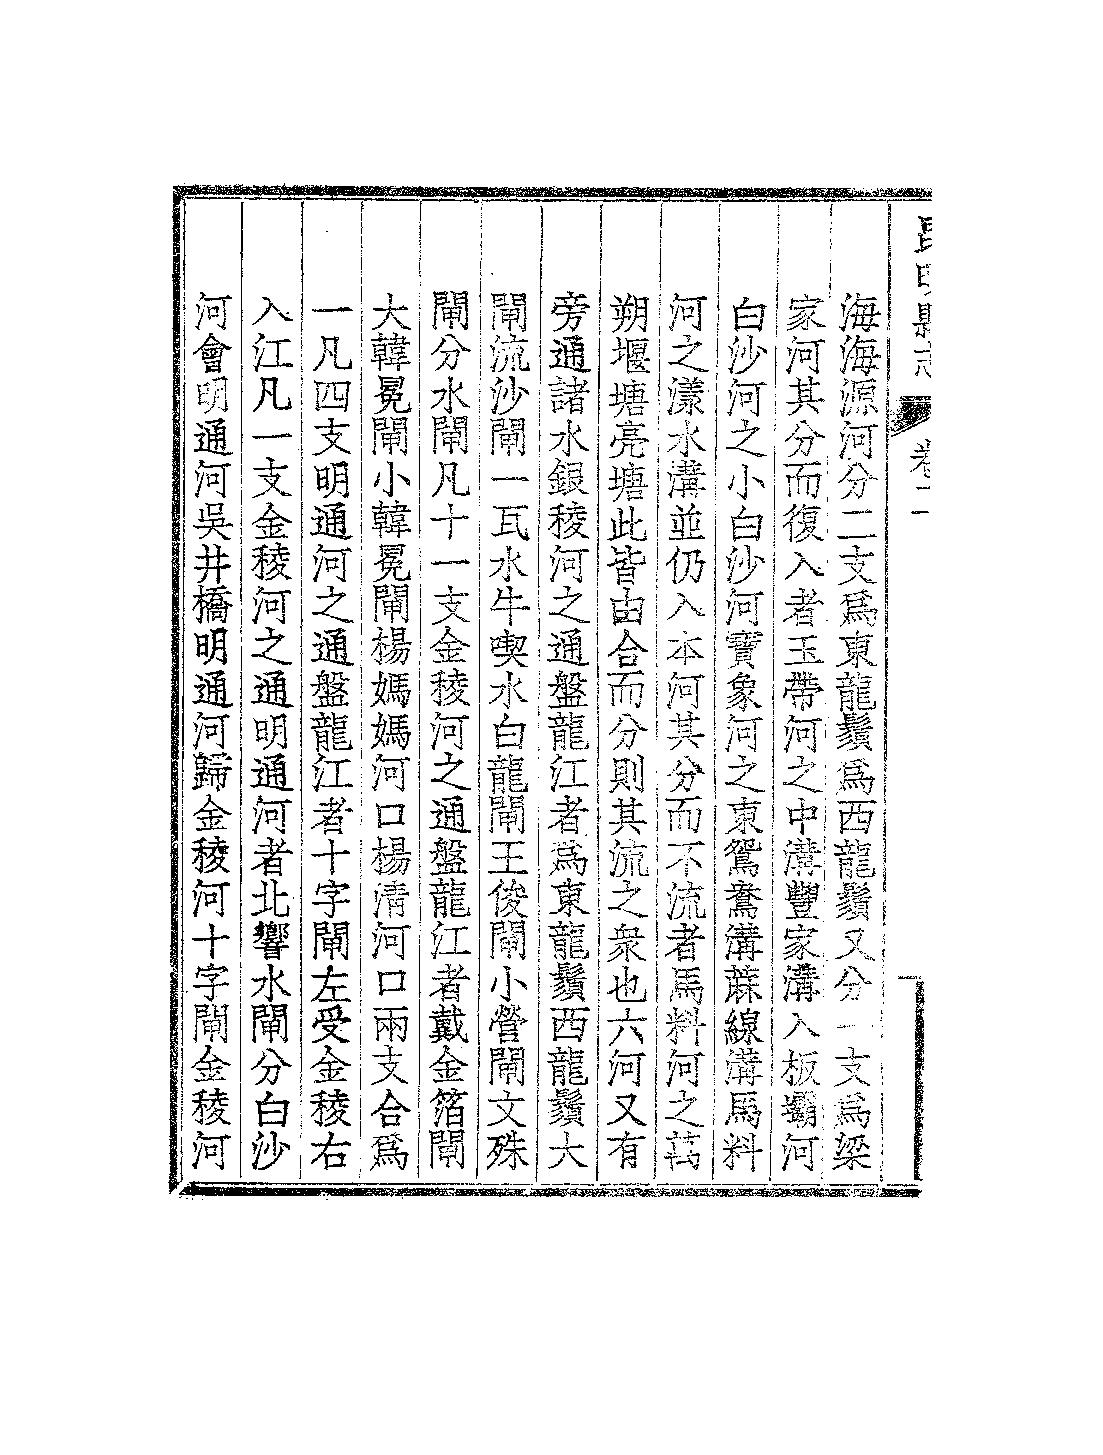 昆明縣志 卷二
海海源河分二支爲東龍鬚爲西龍鬚又分一支爲梁
家河其分而復入者玉帶河之中溝豐家溝入板壩河
白沙河之小白沙河寶象河之東鴛鴦溝蔴線溝馬料
河之漾水溝並仍入本河其分而不流者馬料河之萬
朔堰塘亮塘此皆由合而分則其流之衆也六河又有
旁通諸水銀稜河之通盤龍江者爲東龍鬚西龍鬚大
閘流沙閘一瓦水牛喫水白龍閘王俊閘小營閘文殊
閘分水閘凡十一支金稜河之通盤龍江者戴金箔閘
大韓冕閘小韓冕閘楊媽媽河口楊清河口兩支合爲
一凡四支明通河之通盤龍江者十字閘左受金稜右
入江凡一支金稜河之通明通河者北響水閘分白沙
河會明通河吳井橋明通河歸金稜河十字閘金稜河